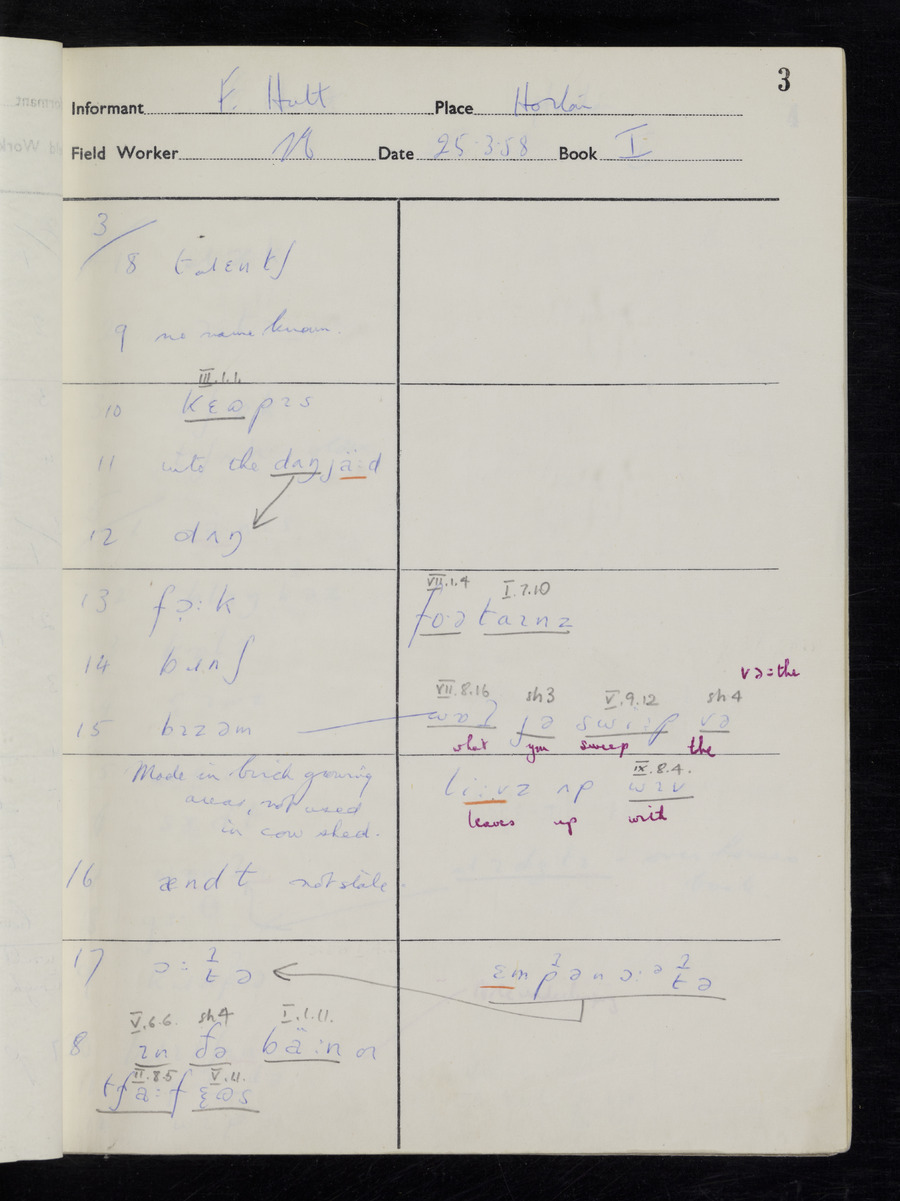 3
Informant F. Hutt Place
Field Worker Date 25.3.58 Book I
3/
8 tɹɛntʃ
9 no name known.
III.1.1.
10 kɛɷpɪs
11 into the daŋjä:d
12 dʌŋ
13 fɔ̣:k
VII.1.4 I.7.10
fɔ·ə taɪnz
14 bɪnʃ
və = the
VII.8.16 sh3 V.9.12 sh4
15 bɪzəm wɒʔ jə swi:p və
what you sweep the
Made in birch growing
areas, not used
in cow shed.
IX.8.4.
li:vz ʌp wɪv
leaves up with
16 ændt not stale.
17 ɔ:ʔtə ɛmpʔən ɔ:əʔtə
V.6.6. sh4 I.1.11.
8 ɪn ðə bä:n or
II.8.5 V.1.1.
tʃä:f ɛɷs